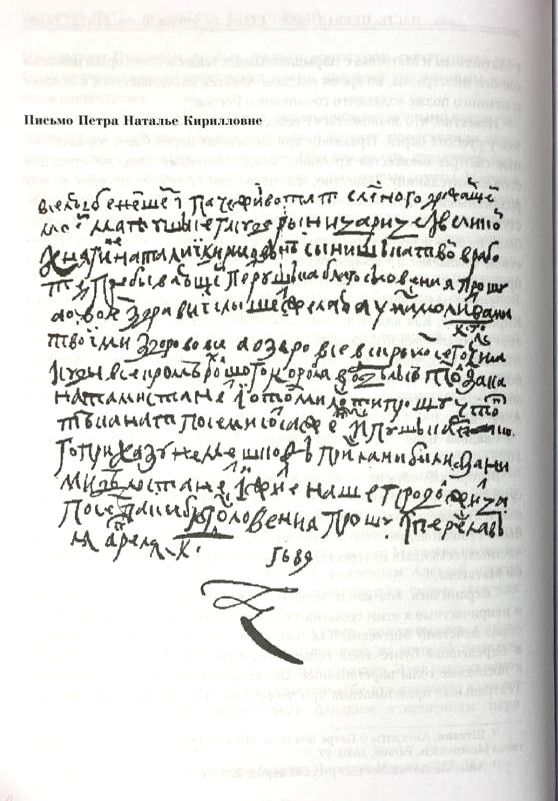 Письмо Петра Наталье Кирилловне
вселюбезнейшеі и паче живота телесного дражаше
моеі матушьке гасударыни царице і великоі
кнегине наталиі кириловне сынишька твоі в рабо
те пребываюшеі петрушька благословения прошу
а о твоем здравиі слышеть желаю а у нас молитвами
твоіми здорово все а озеро все вскрылось сего 20 числа
і суды все кроме большого корабля в отделке токмо за кана
натами станет і о том милости прошу чтоб
те канаты по семисот сажен іс пушкарско
го приказу не мешкоф присланы были а за ни
ми дело станет і житье наше продолжитца
по сем паки благословения прошу іс переславля
апреля к
1689